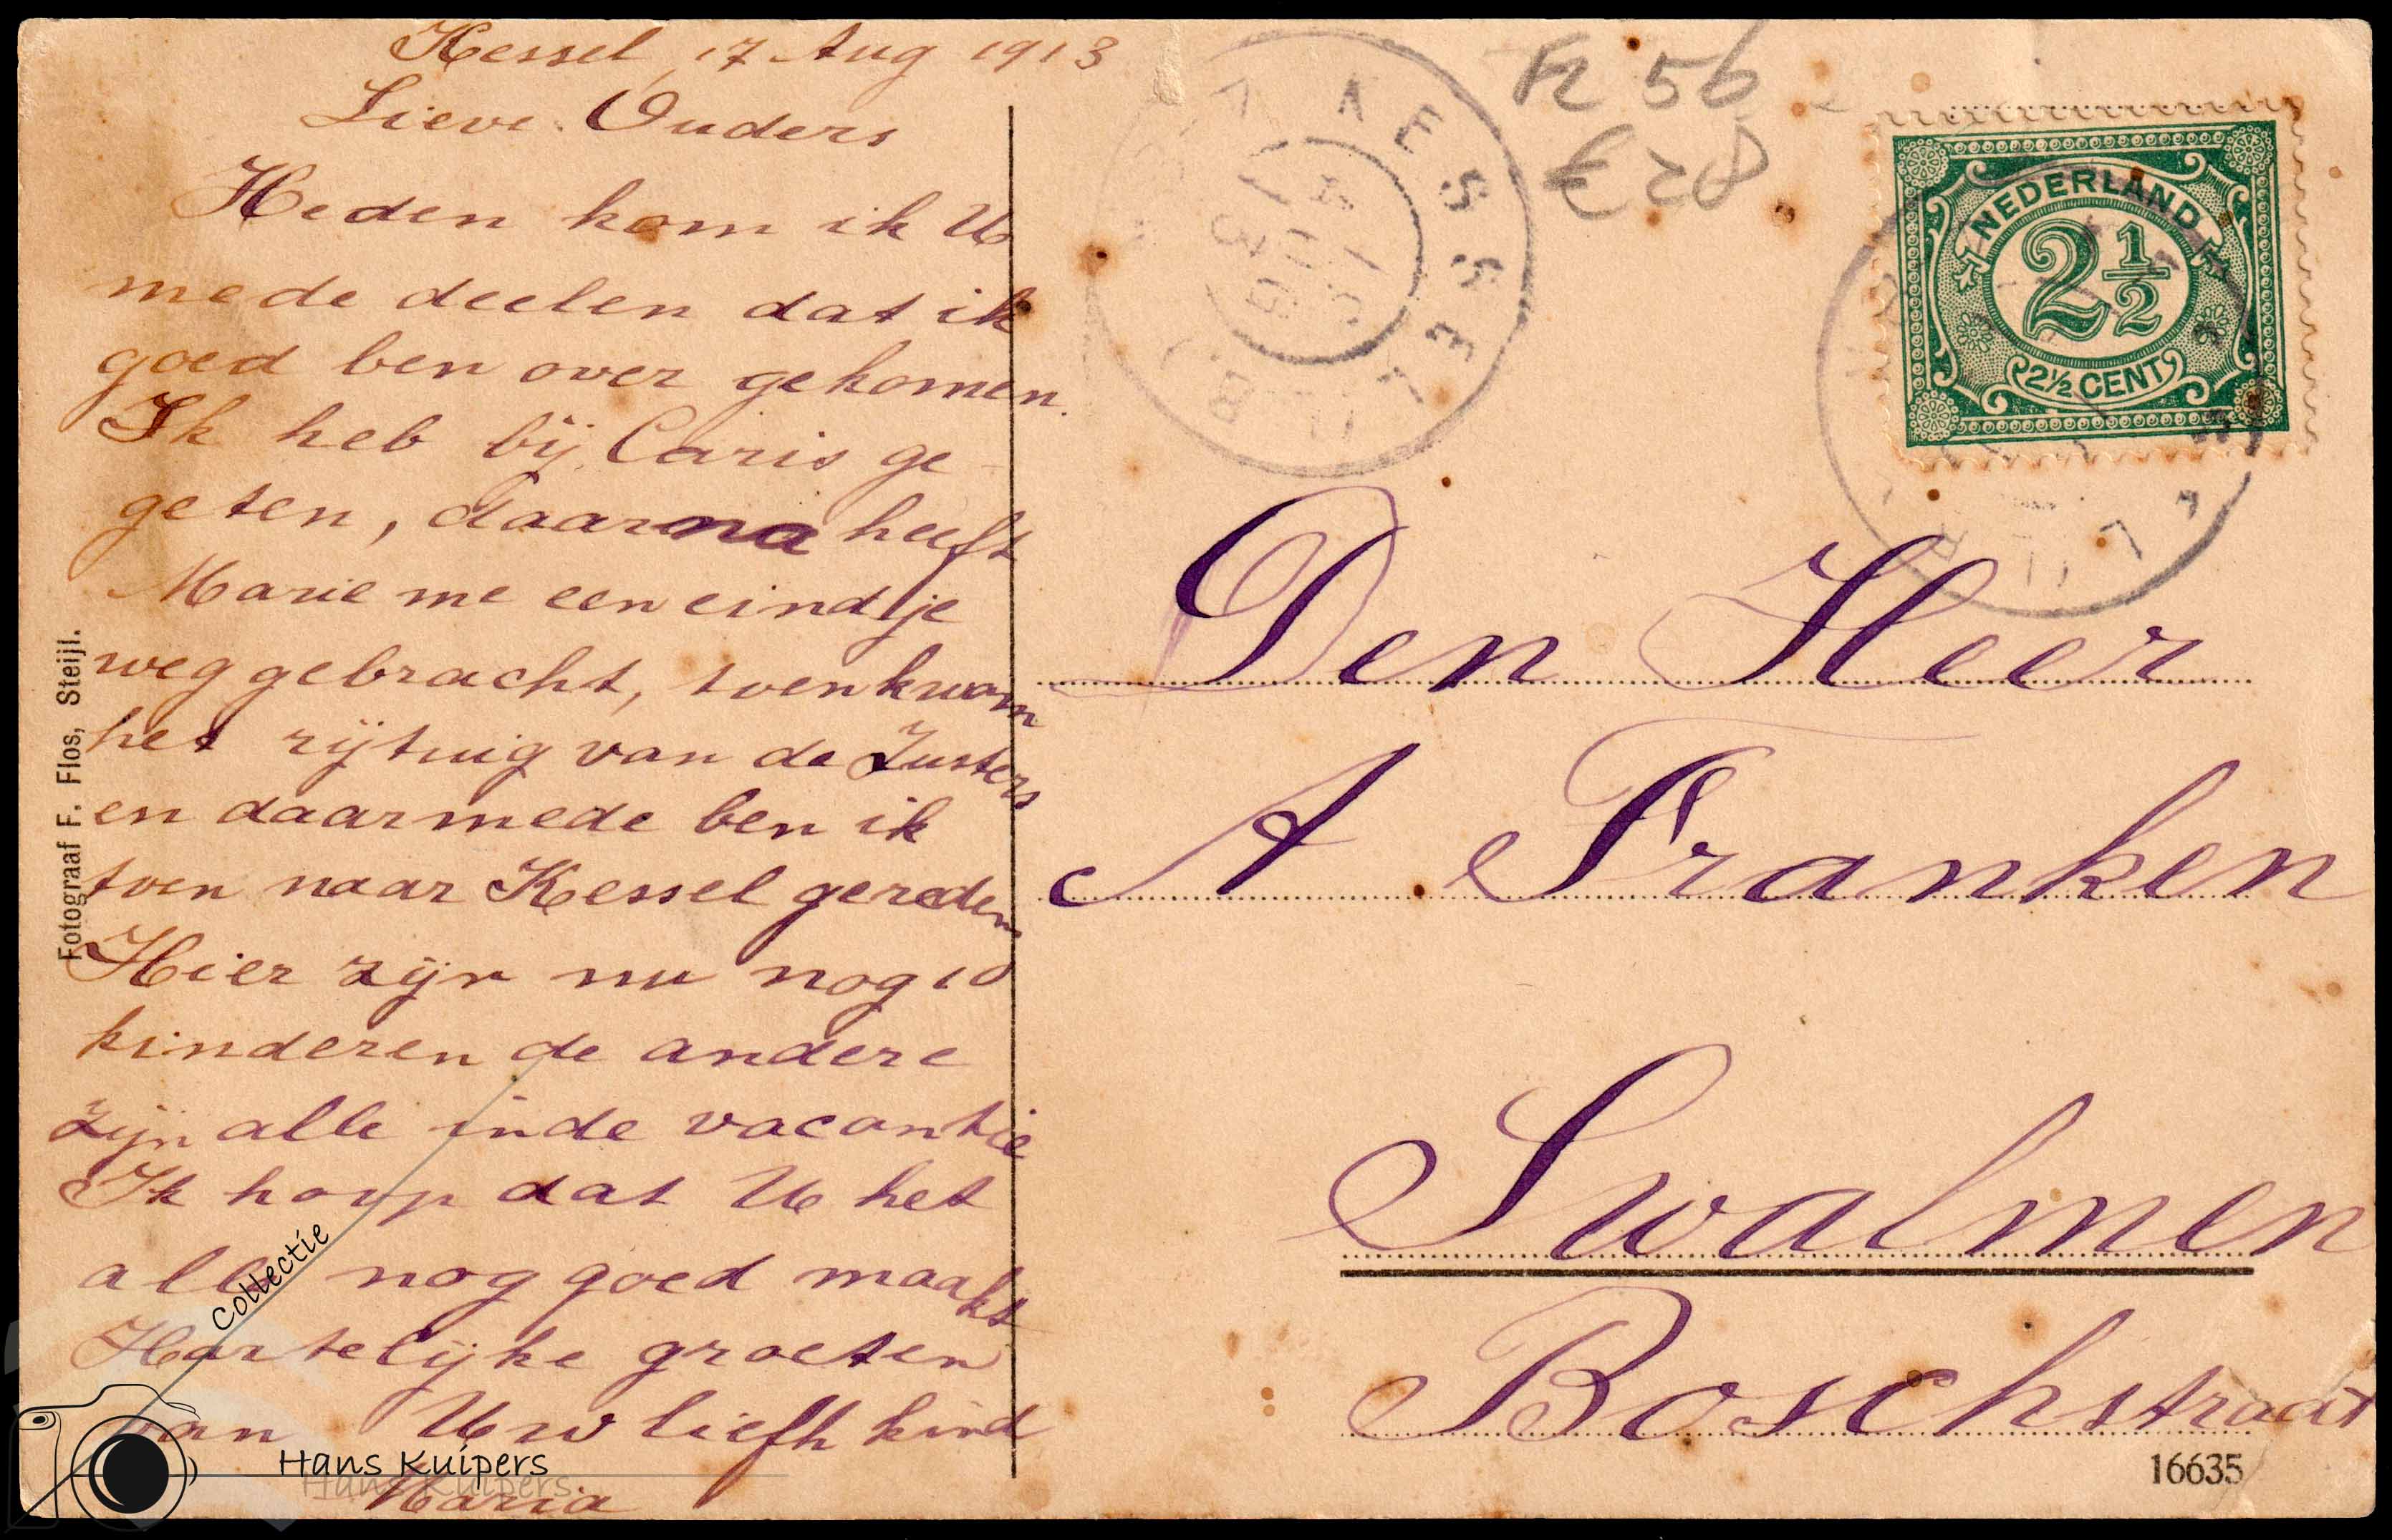 Kessel, 17 Aug 1913
Lieve Ouders
Heden kom ik U
mede deelen dat ik
goed ben over gekomen.
Ik heb bij Caris ge-
geten, daarna heeft
Marie me een eindje
weg gebracht, toen kwam
het rijtuig van de Zusters
en daarmede ben ik
toen naar Kessel gereden
Hier zijn nu nog 10
kinderen de andere
zijn alle in de vacantie
Ik hoop dat U het
alle nog goed maakt
Hartelijke groeten
van Uw liefh kind
Maria
Fotograaf F. Flos, Steijl.
KESSEL (LIMB)
Fl 56
€ 28
NEDERLAND
2½
2½ CENT
Den Heer
A Franken
Swalmen
Boschstraat
16635
Collectie
Hans Kuipers